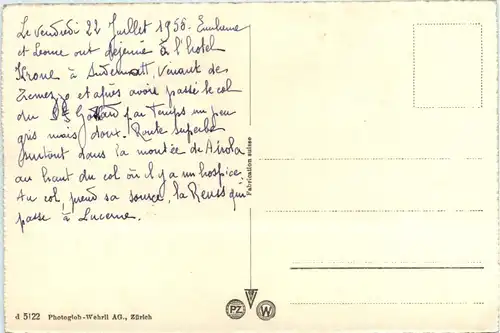 Le vendredi 22 Juillet 1956. Emilienne
et Léonce ont déjeuné à l'hôtel
Krone à Andermatt, venant des
Tremezzo et après avoir passé le col
du St Gothard par temps un peu
gris mais doux. Route superbe
surtout dans la montée de Airolo
au haut du col où il y a un hospice.
Au col, prend sa source, la Reuss qui
passe à Lucerne.
Fabrication suisse
d 5122 Photoglob-Wehrli AG., Zürich
PZ W